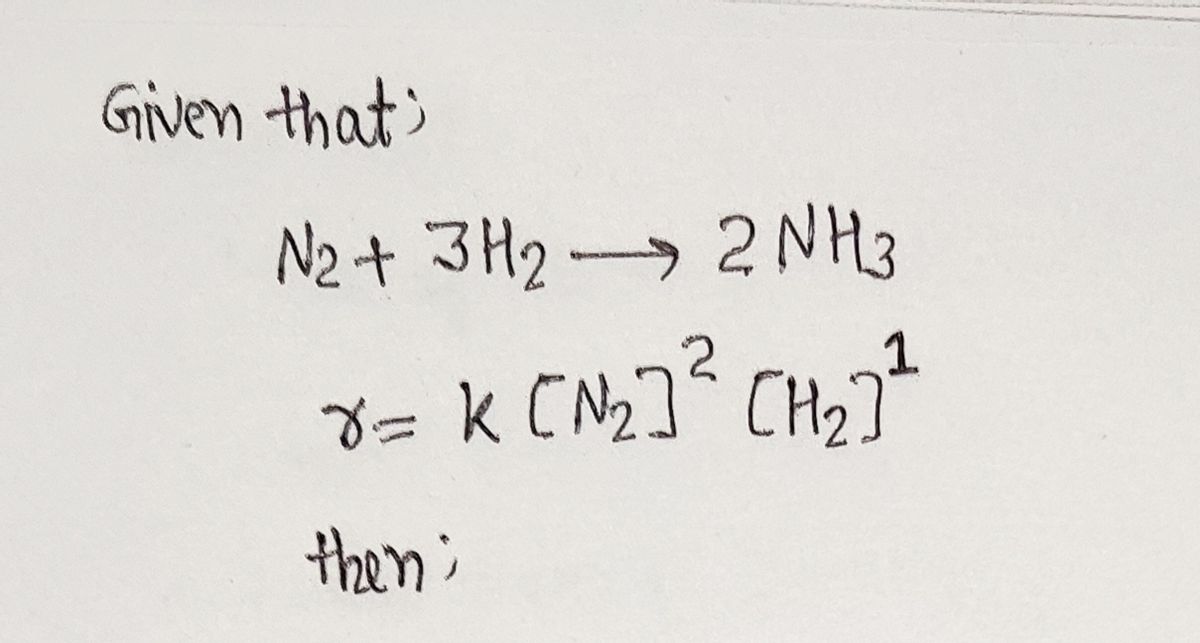 Given that;
N2 + 3H2 → 2NH3
r = k [N2]² [H2]¹
then;